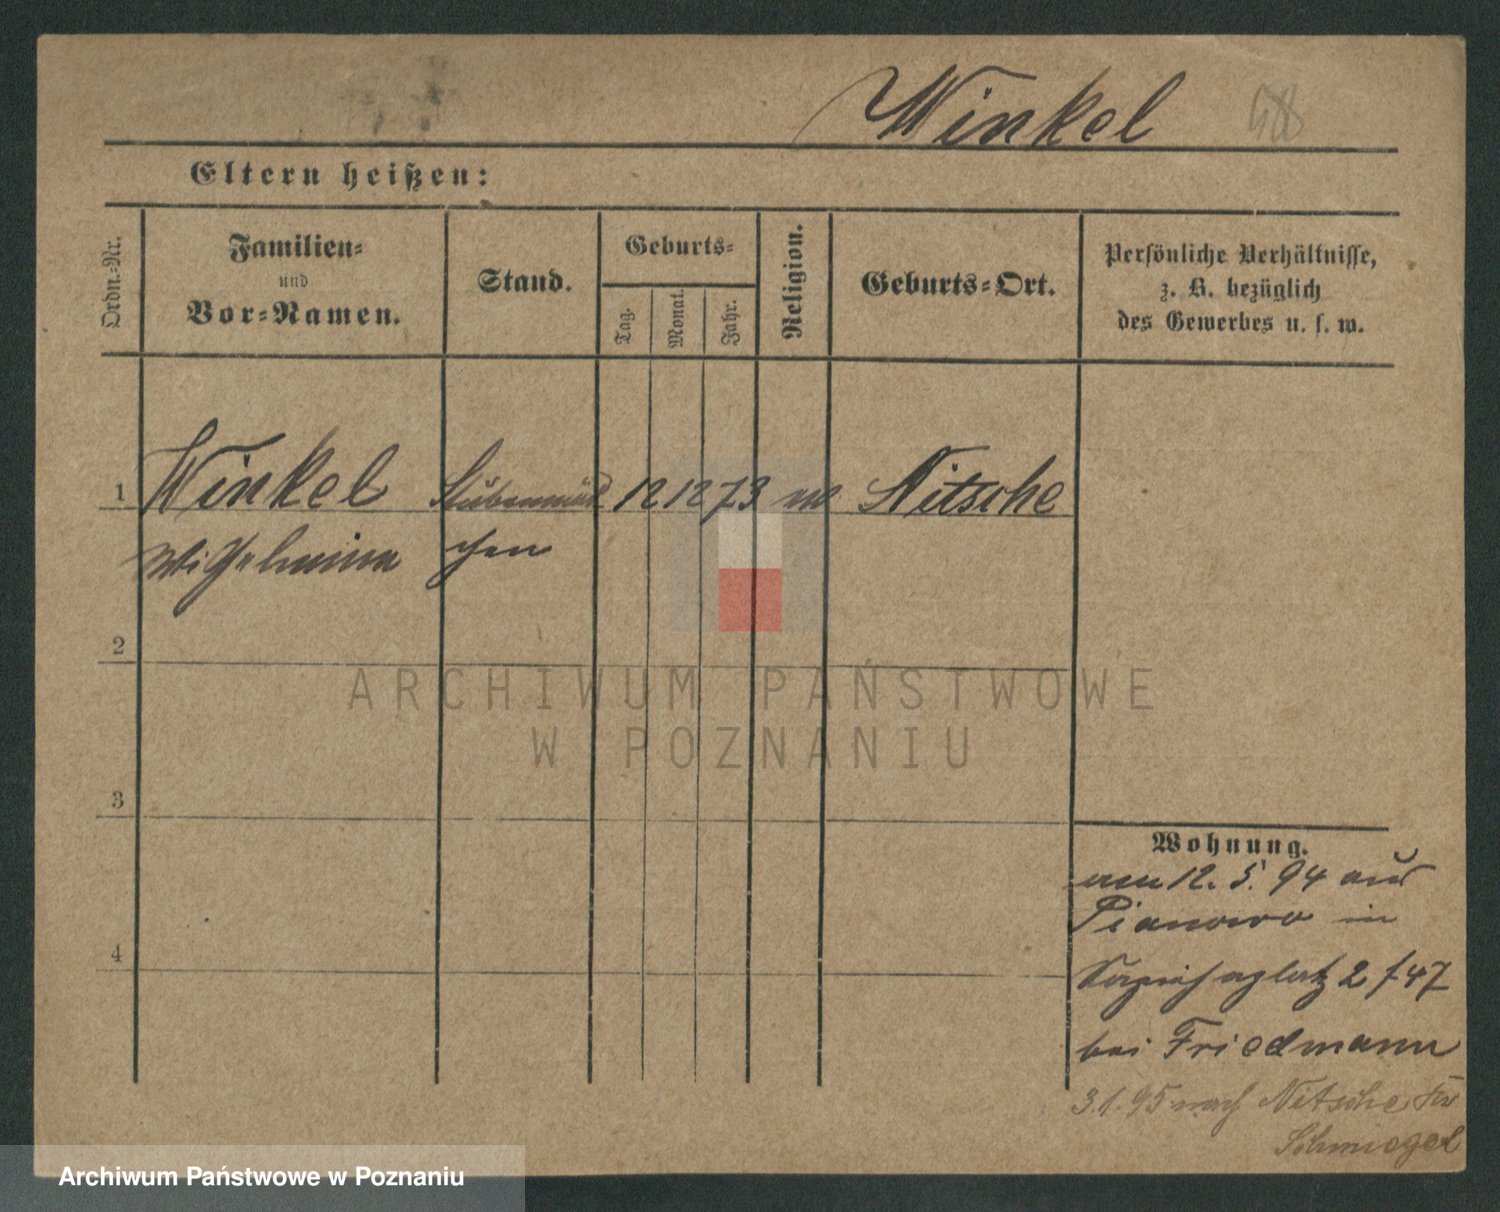 Winkel 58
Eltern heißen:
Ordn.-Nr.
Familien-
und
Vor-Namen.
Stand.
Geburts-
Tag.
Monat.
Jahr.
Religion.
Geburts-Ort.
Persönliche Verhältnisse,
z. B. bezüglich
des Gewerbes u. s. w.
1 Winkel Stubenmäd 12 12 73 Nitsche
Wilhelmine chen
2
3
4
Wohnung.
am 12. 5. 94 aus
Pianowo in
Sapiehaplatz 2 f 47
bei Friedmann
3.1.95 nach Nitsche Kr
Schmiegel
ARCHIWUM PAŃSTWOWE
W POZNANIU
Archiwum Państwowe w Poznaniu